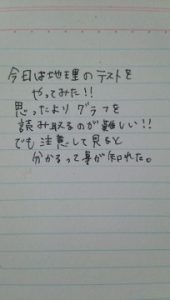 今日は地理のテストを
やってみた!!
思ったよりグラフを
読み取るのが難しい!!
でも注意して見ると
分かるって事が知れた。